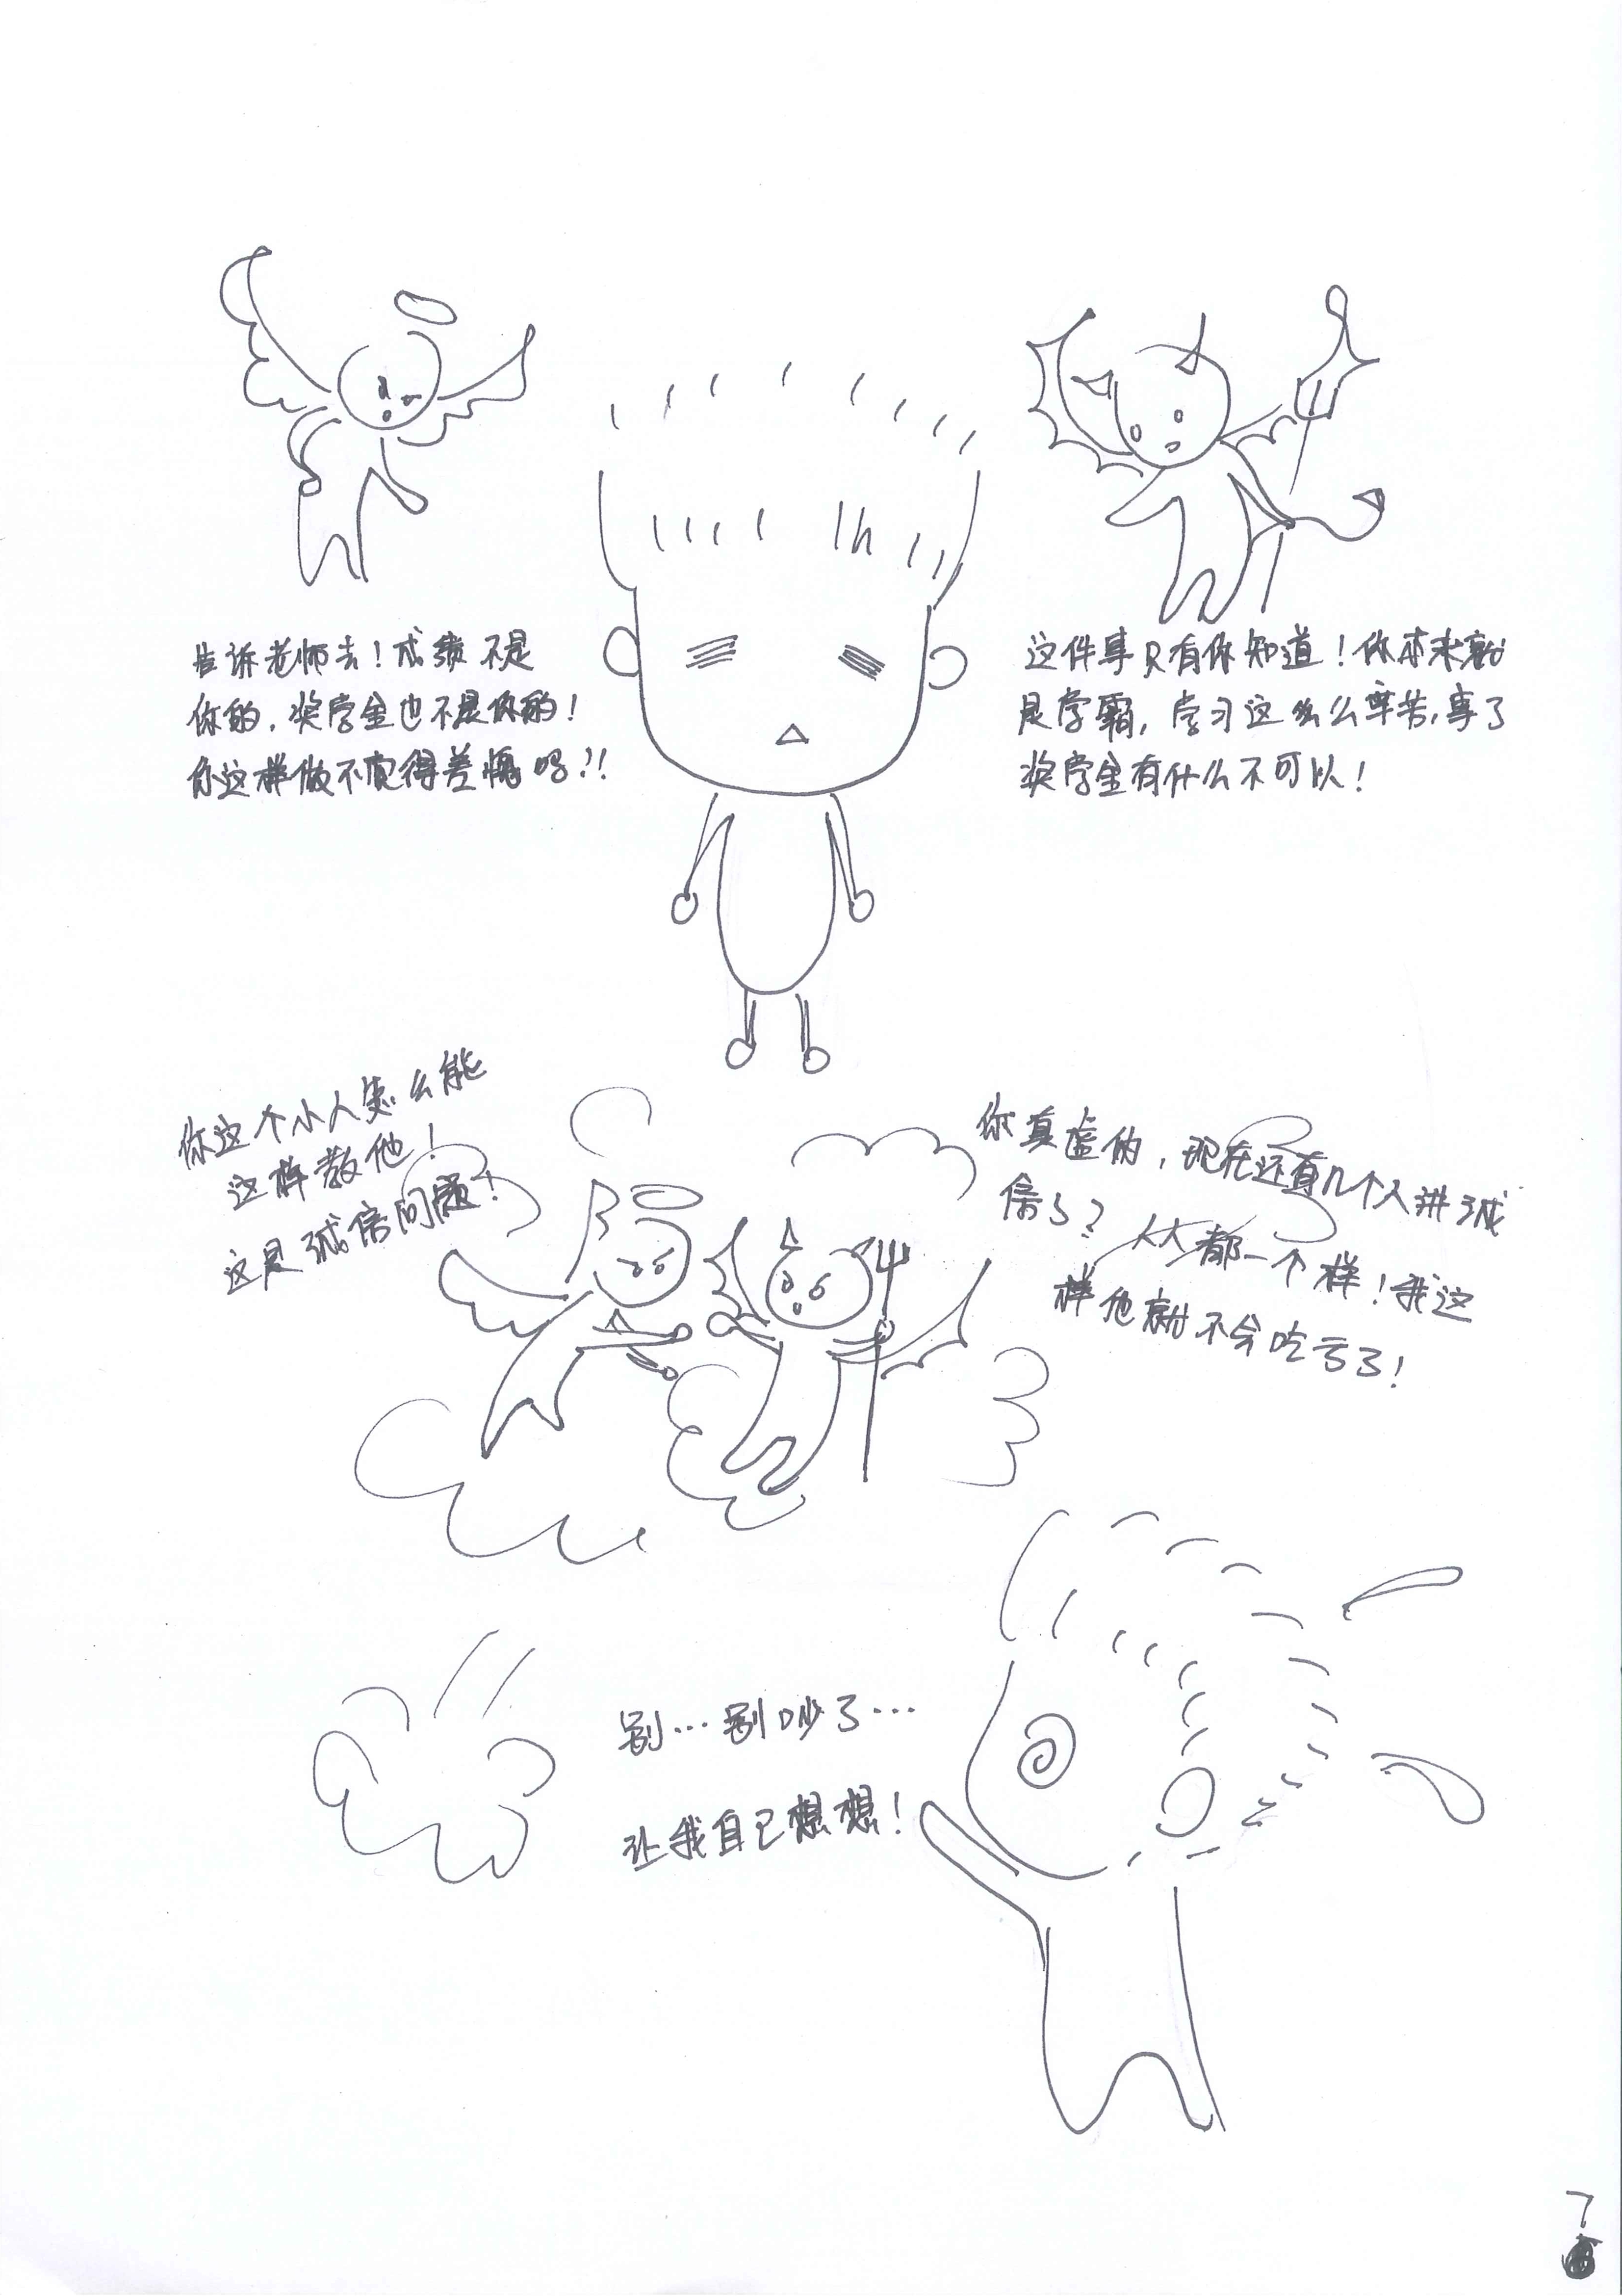 告诉老师去！成绩不是
你的，奖学金也不是你的！
你这样做不觉得羞愧吗？！！
这件事只有你知道！你本来就
是学霸，学习这么么辛苦，拿了
奖学金有什么不可以！
你这个小人怎么能
这样教他！
这是诚信问题！
你真虚伪，现在还有几个人讲诚
信了？人人都一个样！我这
样他就不会吃亏了！
别…别吵了…
让我自己想想！
7